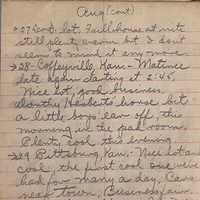 Aug (cont)
→ 27 (cont). lot. Full house at nite
still plenty warm but I dont
seem to mind it any more.
→ 28 - Coffeyville, Kan. - Matinee
late again starting at 2:45.
Nice lot, good business.
house but
a little boys ear off, this
morning in the pad room.
Plenty cool this evening
→ 29 Pittsburg, Kan. - Nice lot and
cool, the first cool one we've
had for many a day. Cars
near town. Business fair.